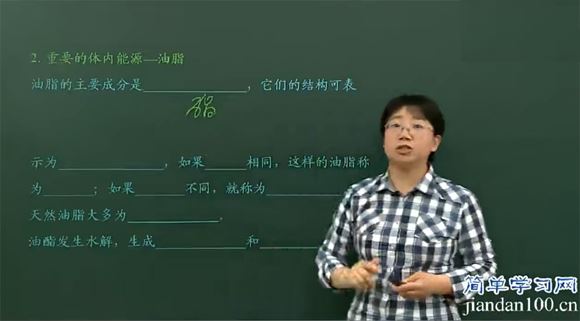 2. 重要的体内能源—油脂
油脂的主要成分是__________，它们的结构可表
酯
示为__________，如果____相同，这样的油脂称
为____；如果____不同，就称为________
天然油脂大多为________.
油酯发生水解，生成________和________
简单学习网
jiandan100.cn